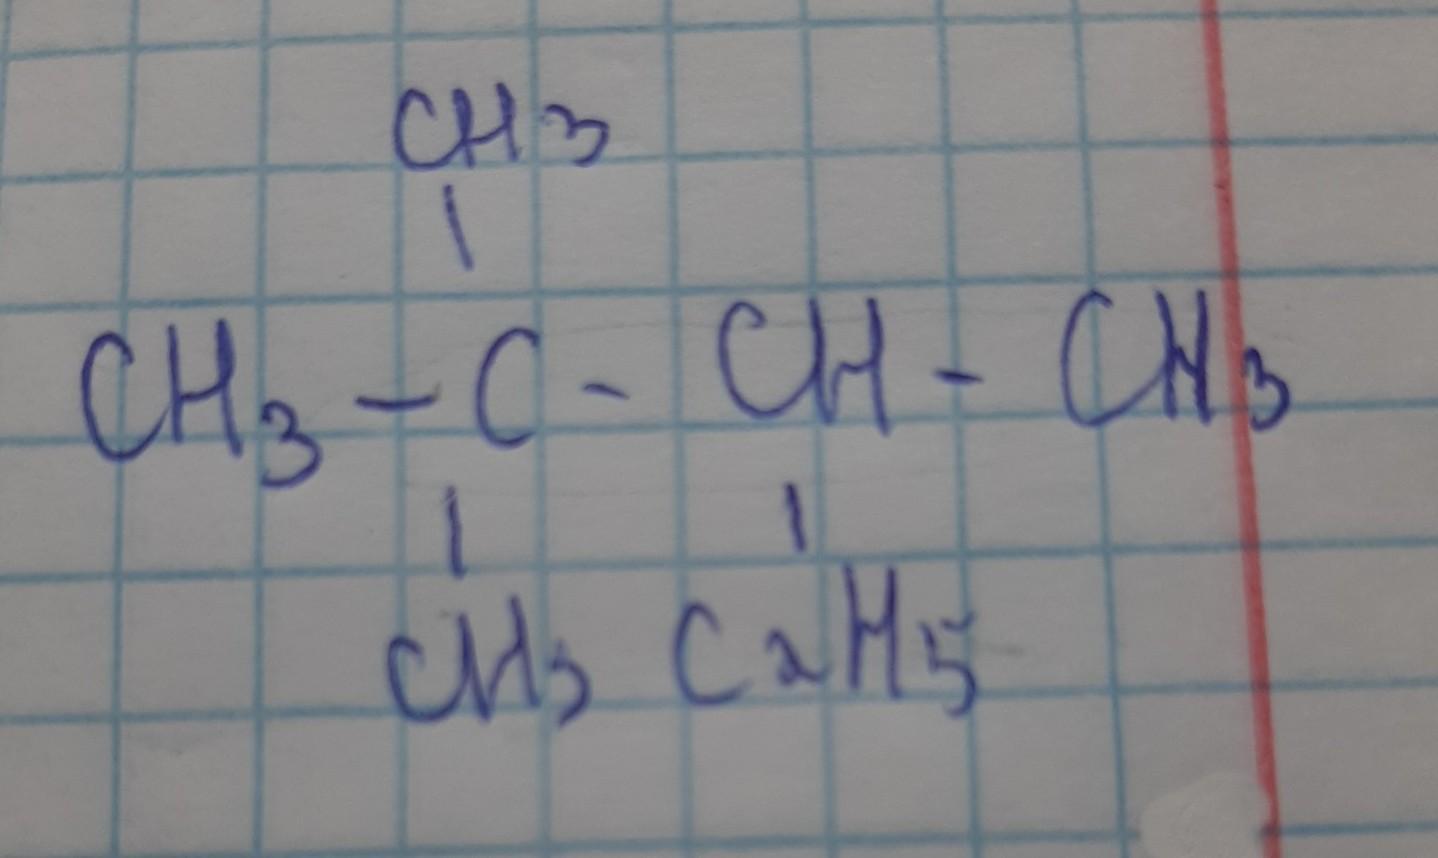 CH3
CH3 - C - CH - CH3
CH3 C2H5